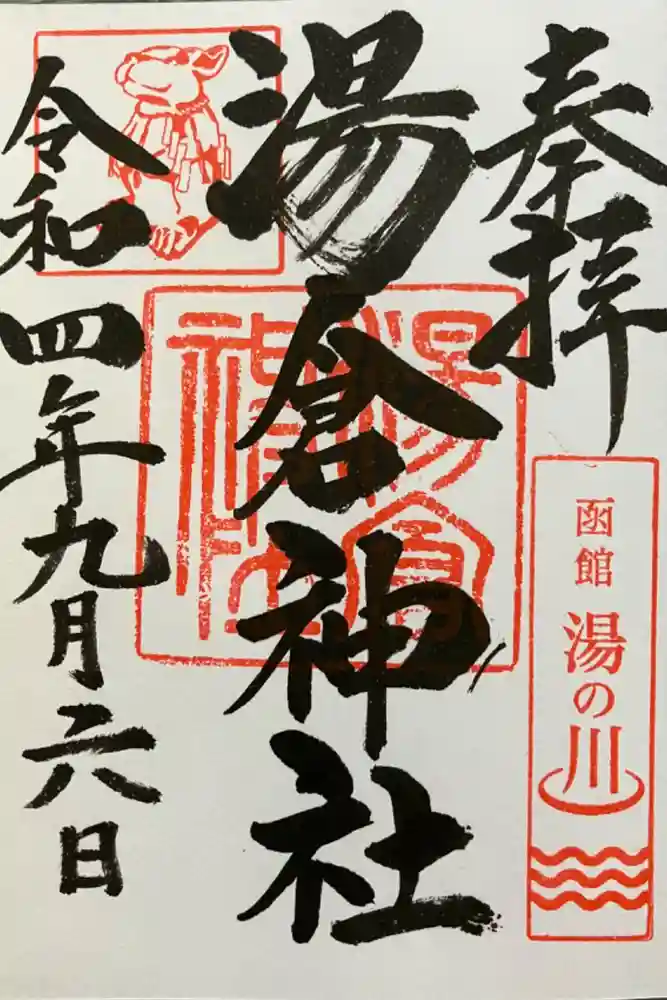 奉拝
函館 湯の川
湯倉神社
湯倉神社
令和四年九月六日